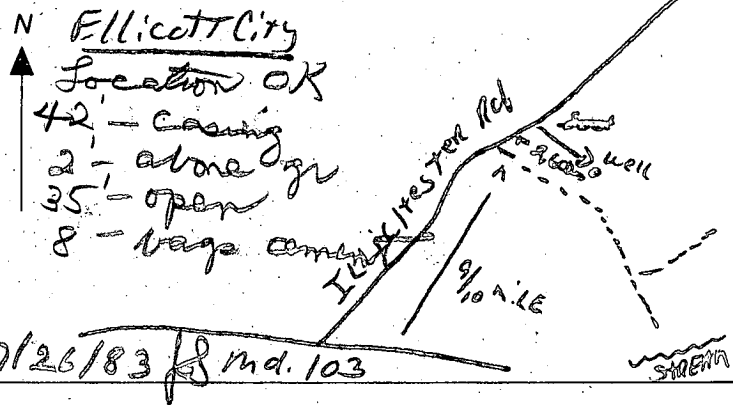 N
Ellicott City
Location OK
42' - casing
2' - above gr
35' - open
8 - bags cement
Ilchester Rd
well
9/10 MiLE
STREAM
7/26/83 Md. 103